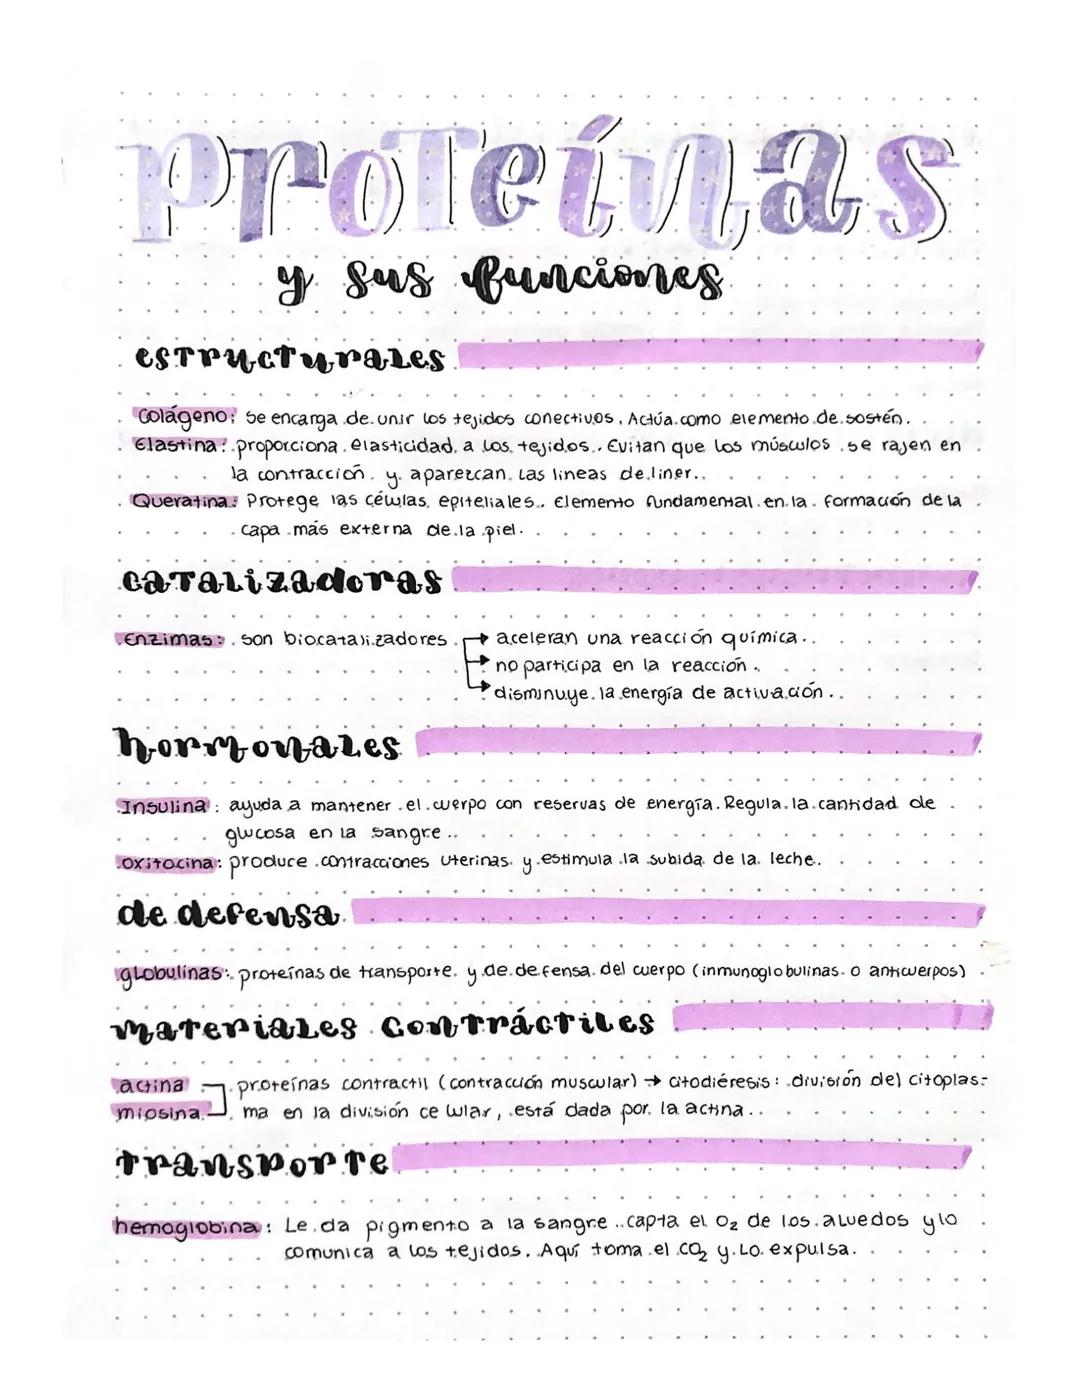 proteínas
y sus funciones
estructurales
Colágeno: Se encarga de unir los tejidos conectivos. Actúa como elemento de sostén.
Elastina: proporciona elasticidad a los tejidos. Evitan que los músculos se rajen en
la contracción y aparezcan las lineas de liner.
Queratina: Protege las células epiteliales. Elemento fundamental en la formación de la
capa más externa de la piel.
catalizadoras
Enzimas: son biocatalizadores → aceleran una reacción química.
→ no participa en la reacción.
→ disminuye la energía de activación.
hormonales
Insulina: ayuda a mantener el cuerpo con reservas de energía. Regula la cantidad de
glucosa en la sangre.
oxitocina: produce contracciones uterinas y estimula la subida de la leche.
de defensa
globulinas: proteínas de transporte y de defensa del cuerpo (inmunoglobulinas o anticuerpos)
materiales contráctiles
actina proteínas contractil (contracción muscular) → citodiéresis: división del citoplas-
miosina ma en la división celular, está dada por la actina.
transporte
hemoglobina: Le da pigmento a la sangre. capta el O₂ de los alvedos y lo
comunica a los tejidos. Aquí toma el CO₂ y lo expulsa.